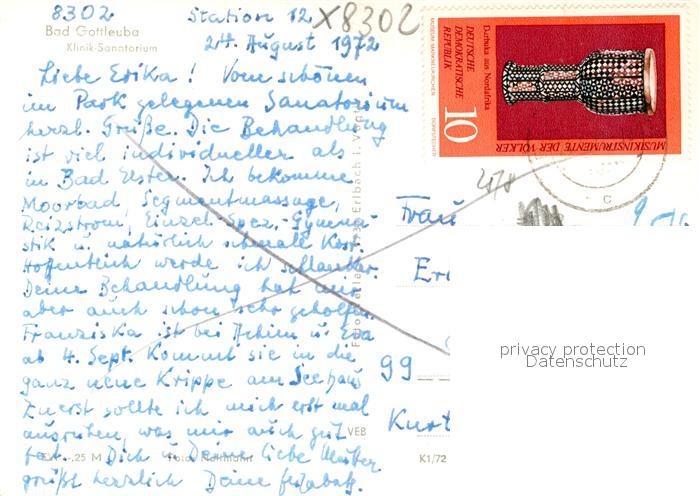 8302
Bad Gottleuba
Klinik-Sanatorium
Station 12
24. August 1972
X8302
Liebe Erika! Vom schönen
im Park gelegenen Sanatorium
herzl. Grüße. Die Behandlung
ist viel individueller als
in Bad Elster. Ich bekomme
Moorbad, Segmentmassage,
Reizstrom, Einzel-Spez.-Gymna-
stik u. natürlich schmale Kost.
Hoffentlich werde ich schlanker.
Deine Behandlung hat mir
aber auch schon sehr geholfen.
Franziska ist bei Achim u. Eva
ab 4. Sept. kommt sie in die
ganz neue Krippe am Seehaus
Zuerst sollte ich mich erst mal
ausruhen, was mir auch gut
tut. Dich u. Deine liebe Mutter
grüßt herzlich Deine
,25 M
VEB
K1/72
Erlbach i.
DEUTSCHE
DEMOKRATISCHE
REPUBLIK
Darbuka aus Nordafrika
MUSIKINSTRUMENTE DER VÖLKER
10
MUSEUM MARKNEUKIRCHEN
C
Frau
99
Kurt
privacy protection
Datenschutz